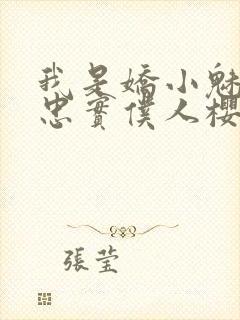 我是嬌小魅
忠實僕人櫻
張莹